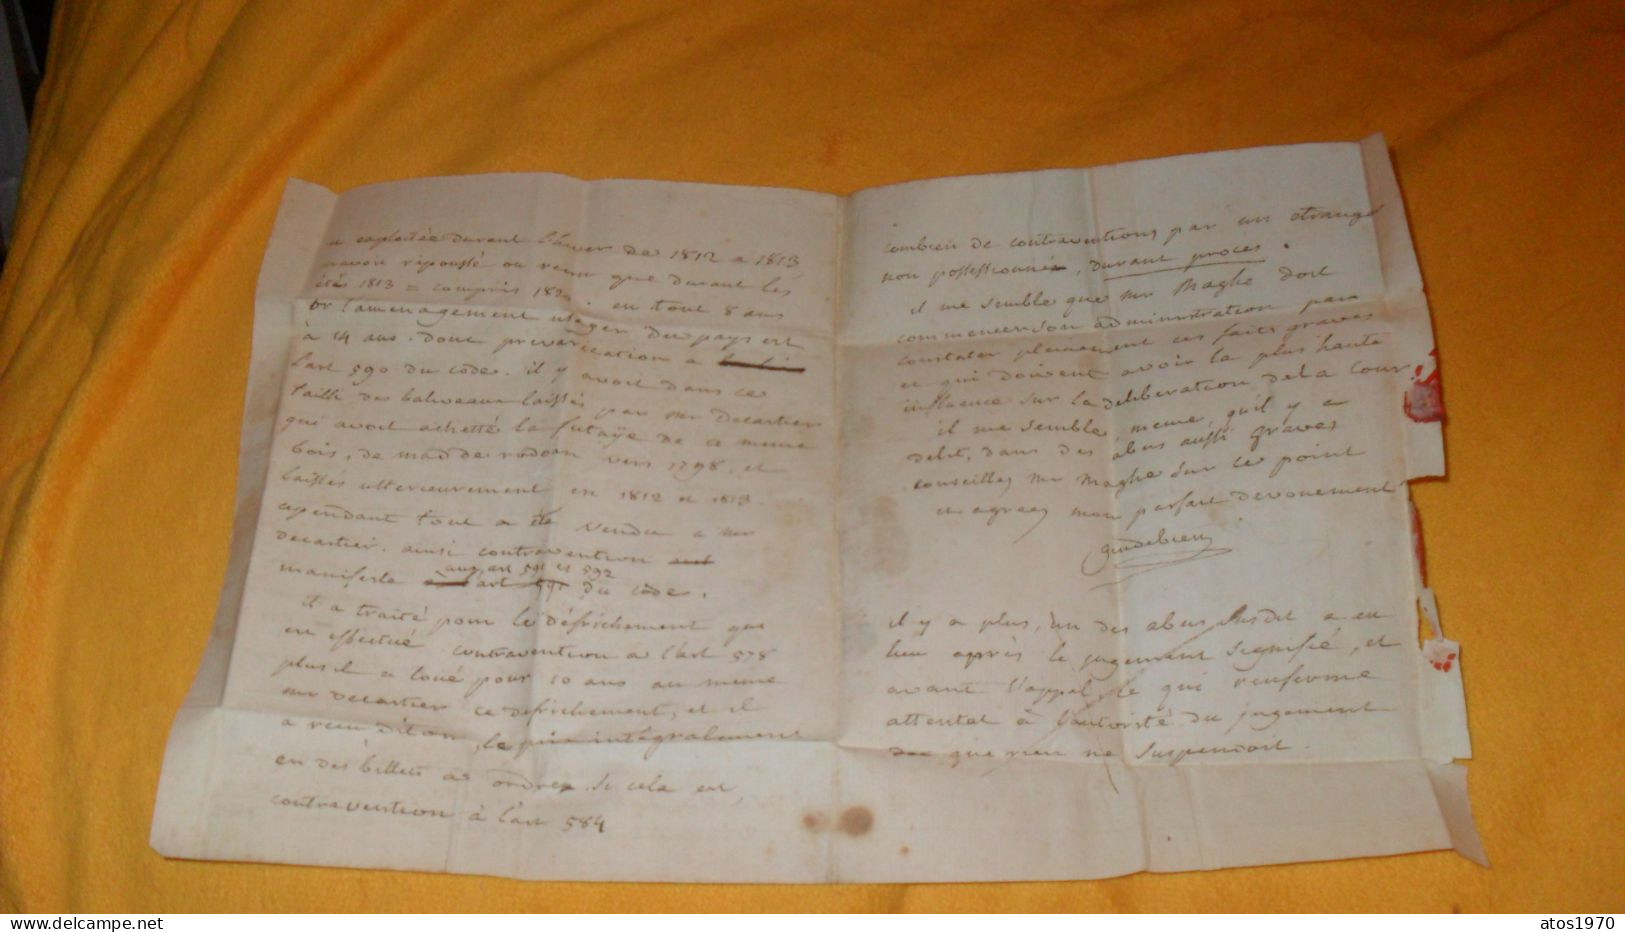 exploitée durant l'hiver de 1812 a 1813
repoussé ou venu que durant les
étés 1813 = compris 1820. en tout 8 ans
or l'amenagement usager du pays est
à 14 ans. donc prevarication a
l'art 590 du code. il y avoit dans ce
taille des baliveaux laissés par mr Decartier
qui avoit achetté la futaÿe de ce meme
bois, de mad de rodoan vers 1798. et
laissés ulterieurement en 1812 et 1813.
cependant tout a été vendu a mr
decartier. ainsi contravention
manifeste aux art 591 et 592 du code.
il a traité pour le défrichement que
en effectué contravention a l'art 578
plus il a loué pour 10 ans au meme
mr decartier ce defrichement, et il
a reçu dit on, le prix intégralement
en des billets a ordre. si cela est,
contravention à l'art 584
combien de contraventions par un etranger
non possessionné, durant proces.
il me semble que mr Maghe doit
commencer son administration par
constater pleinement ces faits graves
ce qui doivent avoir la plus haute
influence sur la deliberation de la Cour
il me semble, meme, qu'il y a
delit, dans des abus aussi graves
conseillez mr Maghe sur ce point
et agreez mon parfait devouement
gendebien
il y a plus, un des abus susdit a eu
lieu après le jugement signifié, et
avant l'appel, ce qui renferme
attentat à l'autorité du jugement
que rien ne suspendoit.
atos1970